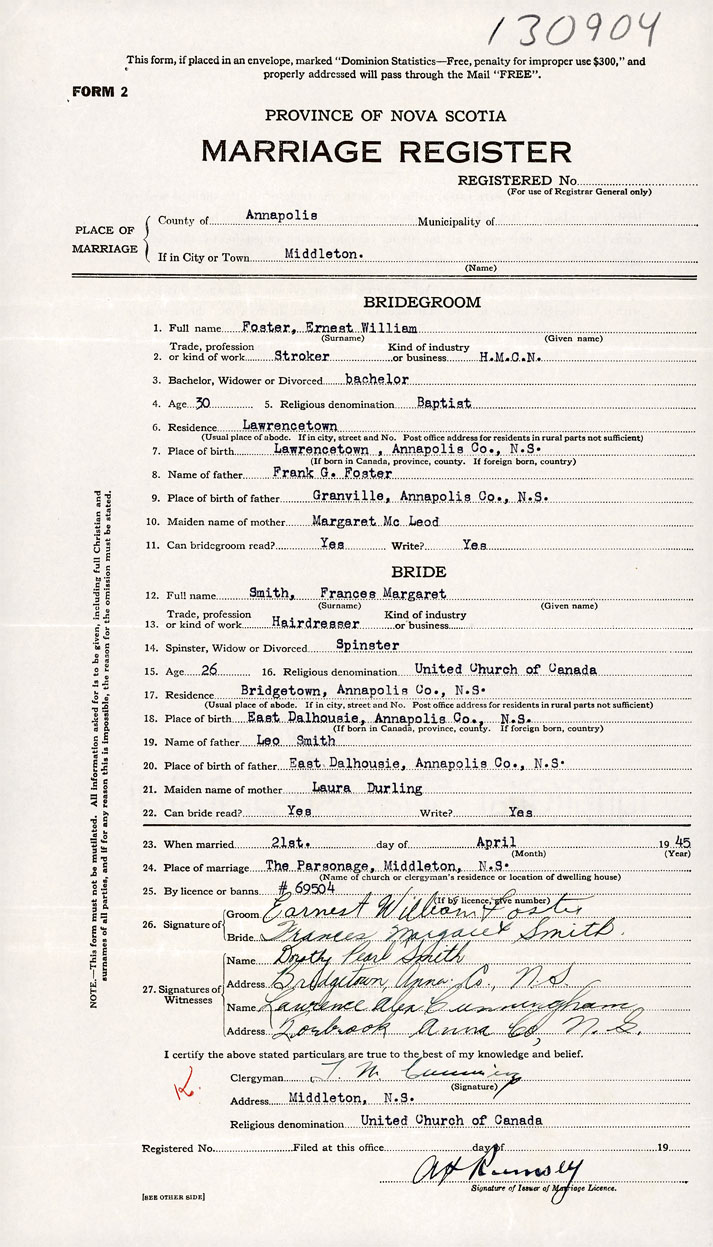 130904
This form, if placed in an envelope, marked "Dominion Statistics—Free, penalty for improper use $300," and
properly addressed will pass through the Mail "FREE".
FORM 2
PROVINCE OF NOVA SCOTIA
MARRIAGE REGISTER
REGISTERED No.
(For use of Registrar General only)
PLACE OF MARRIAGE
County of Annapolis Municipality of
If in City or Town Middleton.
(Name)
BRIDEGROOM
1. Full name Foster, Ernest William
(Surname) (Given name)
Trade, profession Kind of industry
2. or kind of work Stroker or business H.M.C.N.
3. Bachelor, Widower or Divorced bachelor
4. Age 30 5. Religious denomination Baptist
6. Residence Lawrencetown
(Usual place of abode. If in city, street and No. Post office address for residents in rural parts not sufficient)
7. Place of birth Lawrencetown , Annapolis Co., N.S.
(If born in Canada, province, county. If foreign born, country)
8. Name of father Frank G. Foster
9. Place of birth of father Granville, Annapolis Co., N.S.
10. Maiden name of mother Margaret Mc Leod
11. Can bridegroom read? Yes Write? Yes
BRIDE
12. Full name Smith, Frances Margaret
(Surname) (Given name)
Trade, profession Kind of industry
13. or kind of work Hairdresser or business
14. Spinster, Widow or Divorced Spinster
15. Age 26 16. Religious denomination United Church of Canada
17. Residence Bridgetown, Annapolis Co., N.S.
(Usual place of abode. If in city, street and No. Post office address for residents in rural parts not sufficient)
18. Place of birth East Dalhousie, Annapolis Co., N.S.
(If born in Canada, province, county. If foreign born, country)
19. Name of father Leo Smith
20. Place of birth of father East Dalhousie, Annapolis Co., N.S.
21. Maiden name of mother Laura Durling
22. Can bride read? Yes Write? Yes
23. When married 21st. day of April 1945
(Month) (Year)
24. Place of marriage The Parsonage, Middleton, N.S.
(Name of church or clergyman's residence or location of dwelling house)
25. By licence or banns # 69504
(If by licence, give number)
26. Signature of
Groom Earnest William Foster
Bride Frances Margaret Smith.
27. Signatures of Witnesses
Name Dorothy Pearl Smith
Address Bridgetown, Anna. Co., N.S.
Name Lawrence Alex Cunningham
Address Torbrook Anna Co, N.S.
I certify the above stated particulars are true to the best of my knowledge and belief.
Clergyman
(Signature)
Address Middleton, N.S.
Religious denomination United Church of Canada
Registered No. Filed at this office day of 19
Signature of Issuer of Marriage Licence.
[SEE OTHER SIDE]
NOTE.—This form must not be mutilated. All information asked for is to be given, including full Christian and
surnames of all parties, and if for any reason this is impossible, the reason for the omission must be stated.